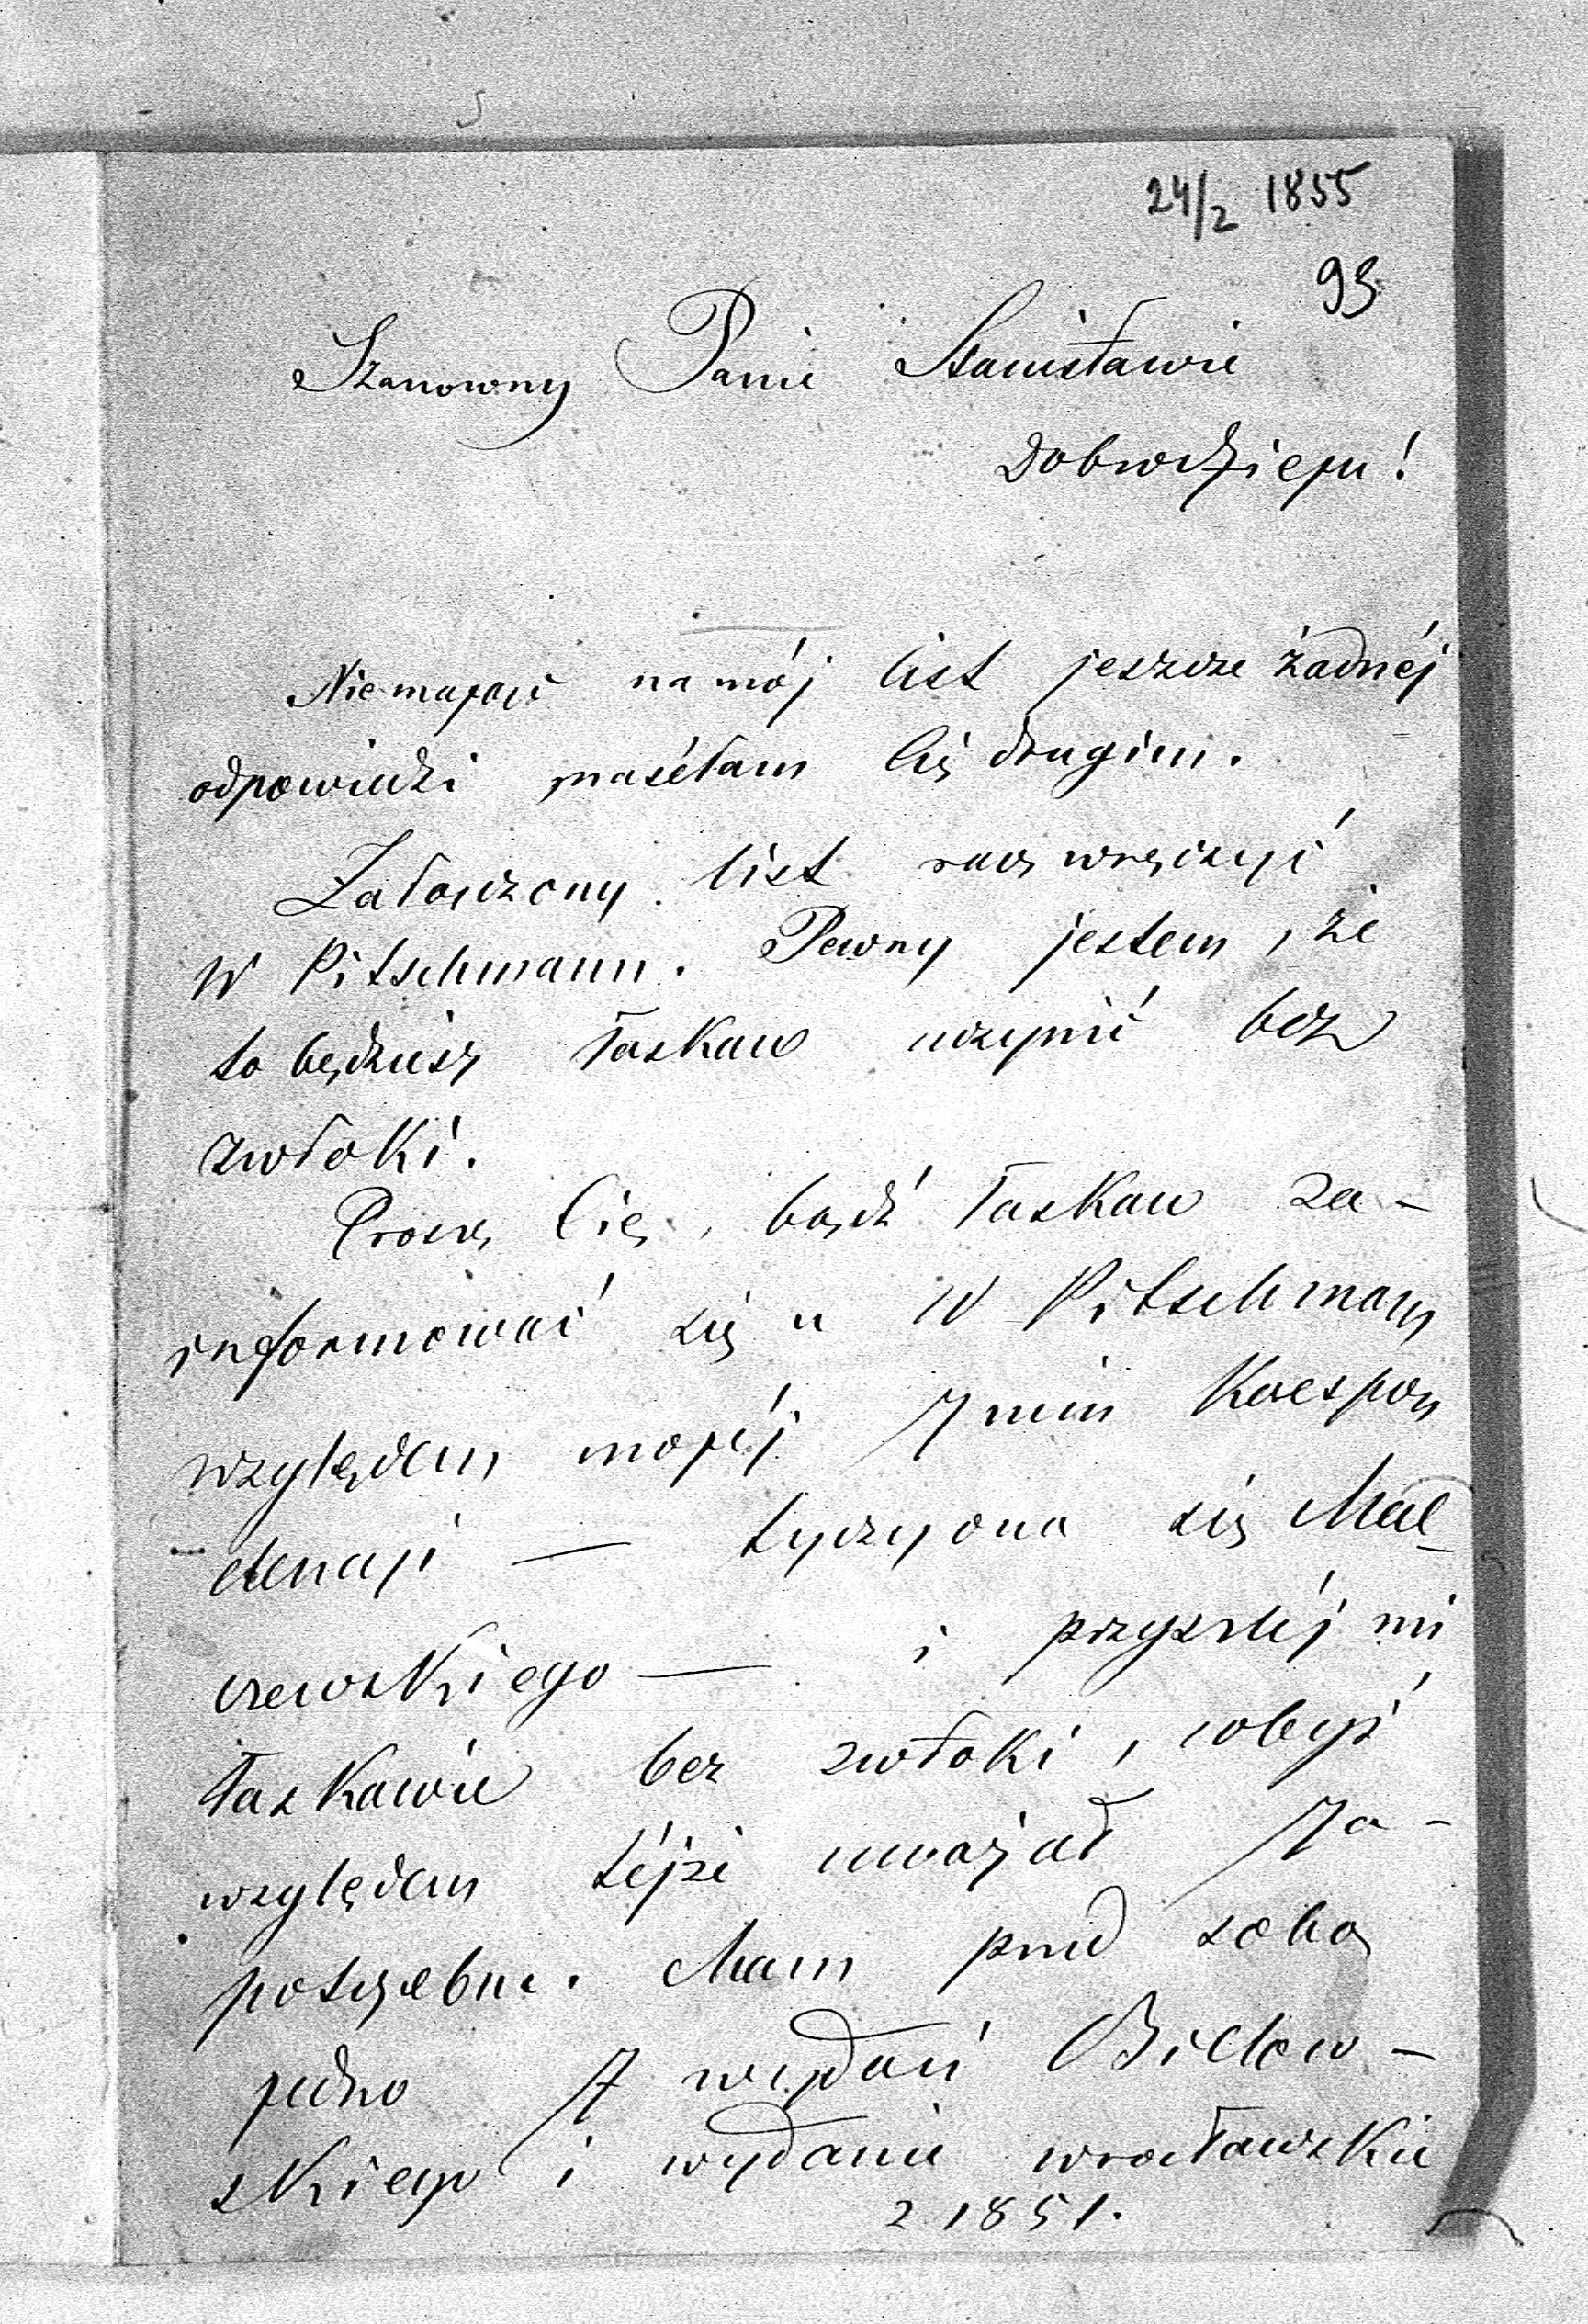 24/2 1855
93
Szanowny Panie Stanisławie
Dobrodzieju!
Niemając na mój list jeszcze żadnéj
odpowiedzi Cię drugim.
Załączony list racz wręczyć
W Pitschmann. Pewny jestem, że
to będziesz łaskaw uczynić bez
zwłoki.
Proszę Cię, bądź łaskaw za-
informować się u W Pitschmann
względem mojéj z nim Korespon
dencji — tyczącéj się Mal-
czewskiego — i przyszléj mi
łaskawie bez zwłoki, cobyś
względem téjże uważał za-
potrzebne. Mam przed sobą
jedno z wydań Bielow-
skiego i wydanie wrocławskie
z 1851.